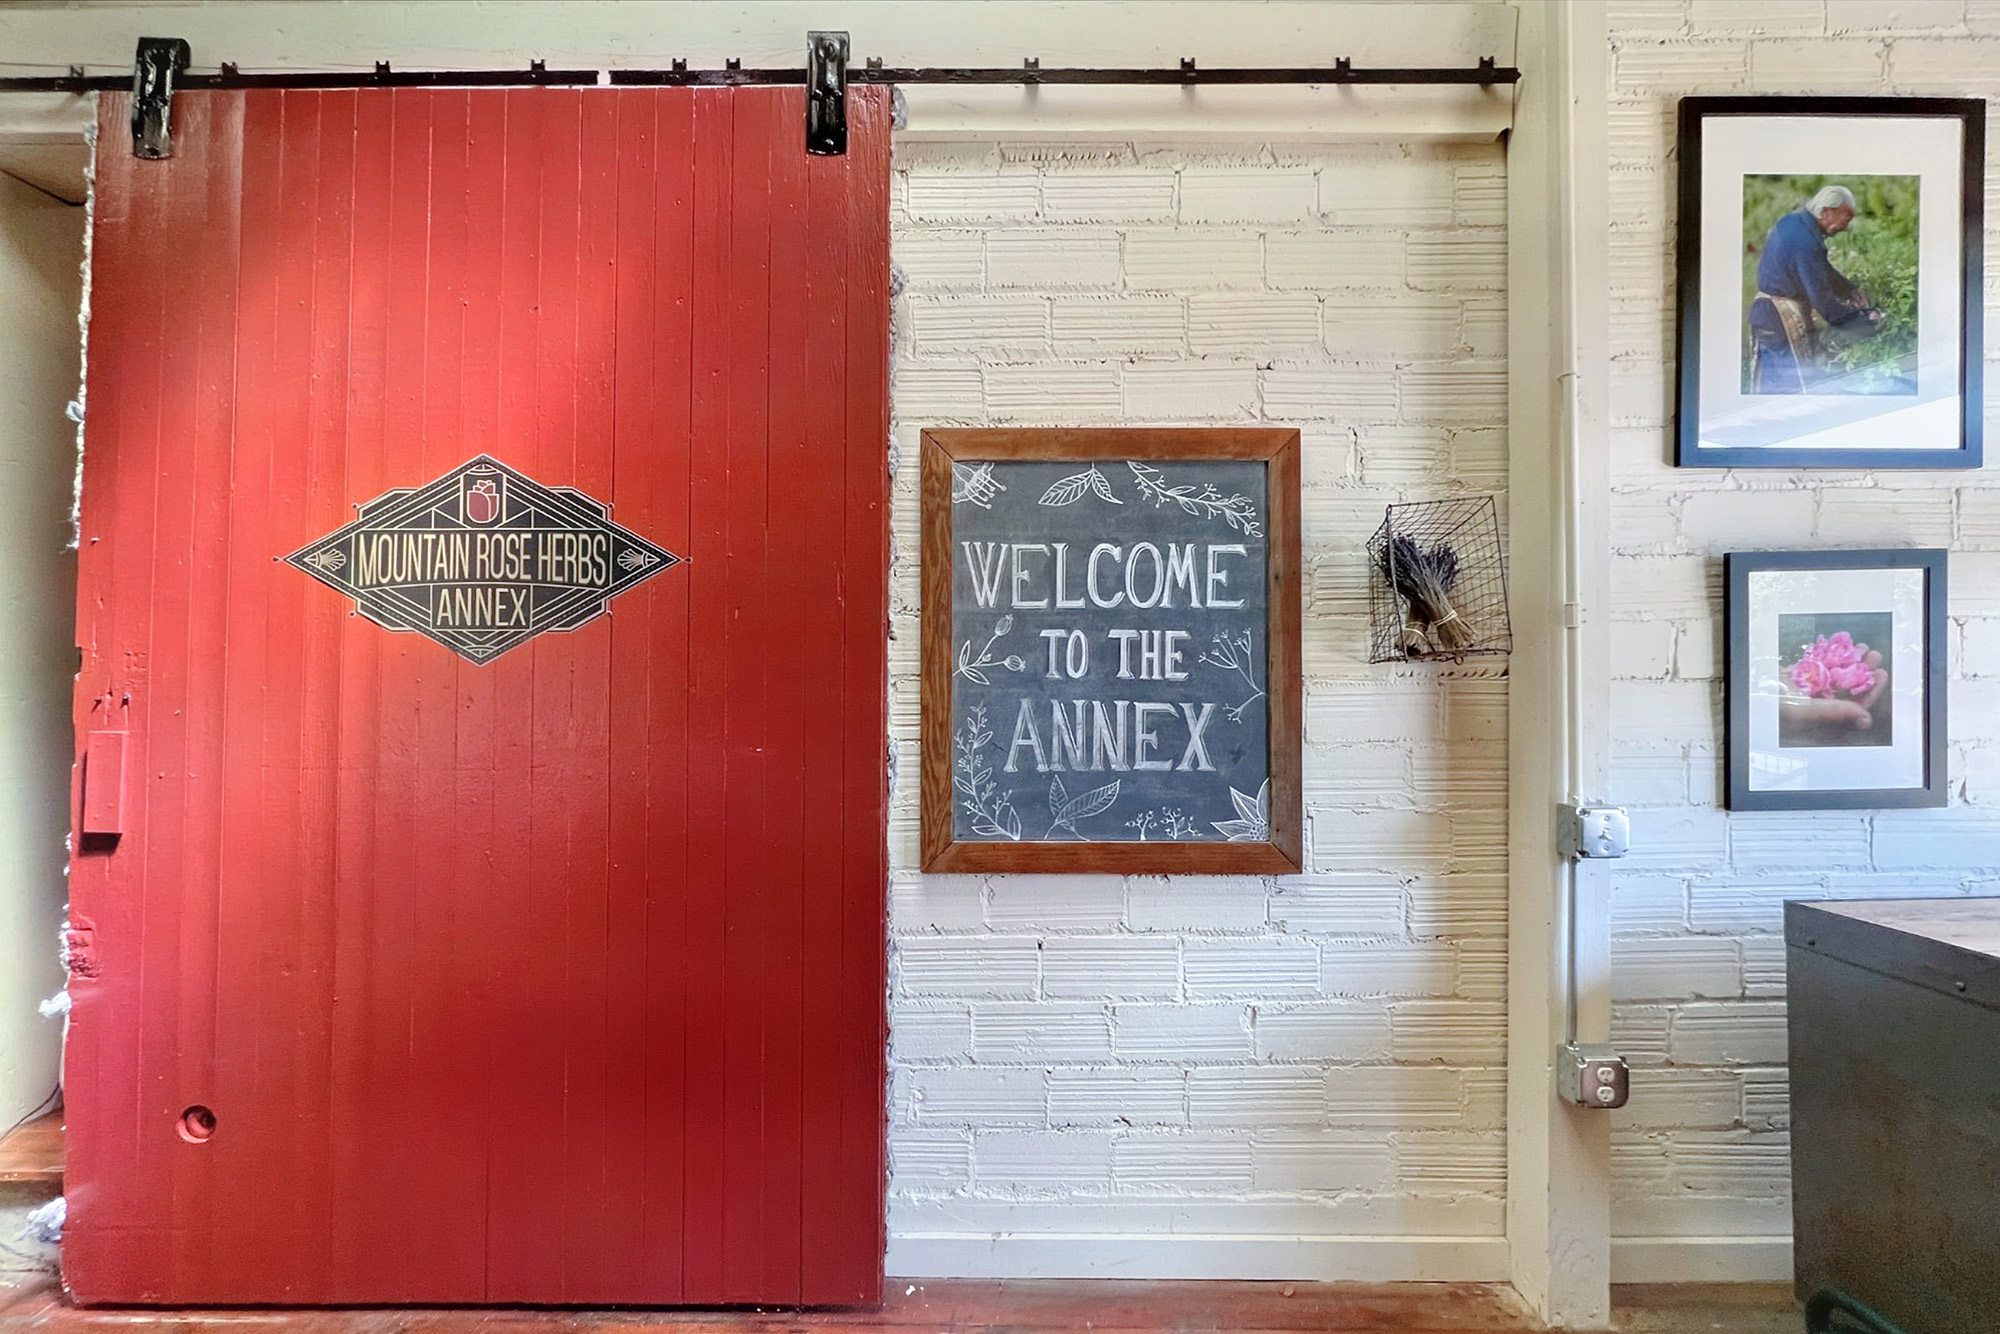 MOUNTAIN ROSE HERBS
ANNEX
WELCOME
TO THE
ANNEX